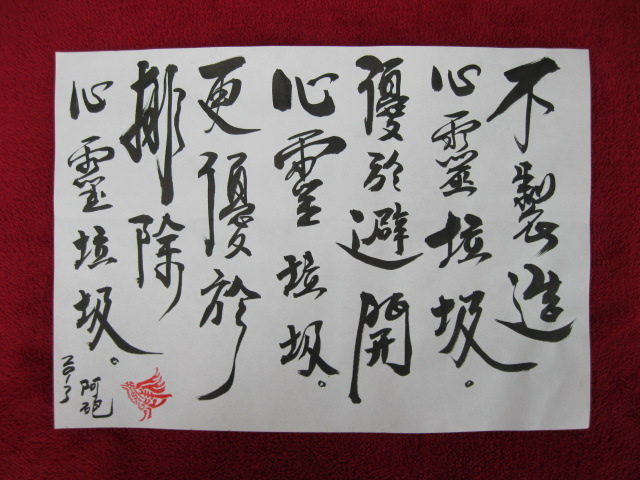 不製造
心靈垃圾。
優於避開
心靈垃圾。
更優於
排除
心靈垃圾。
阿砲